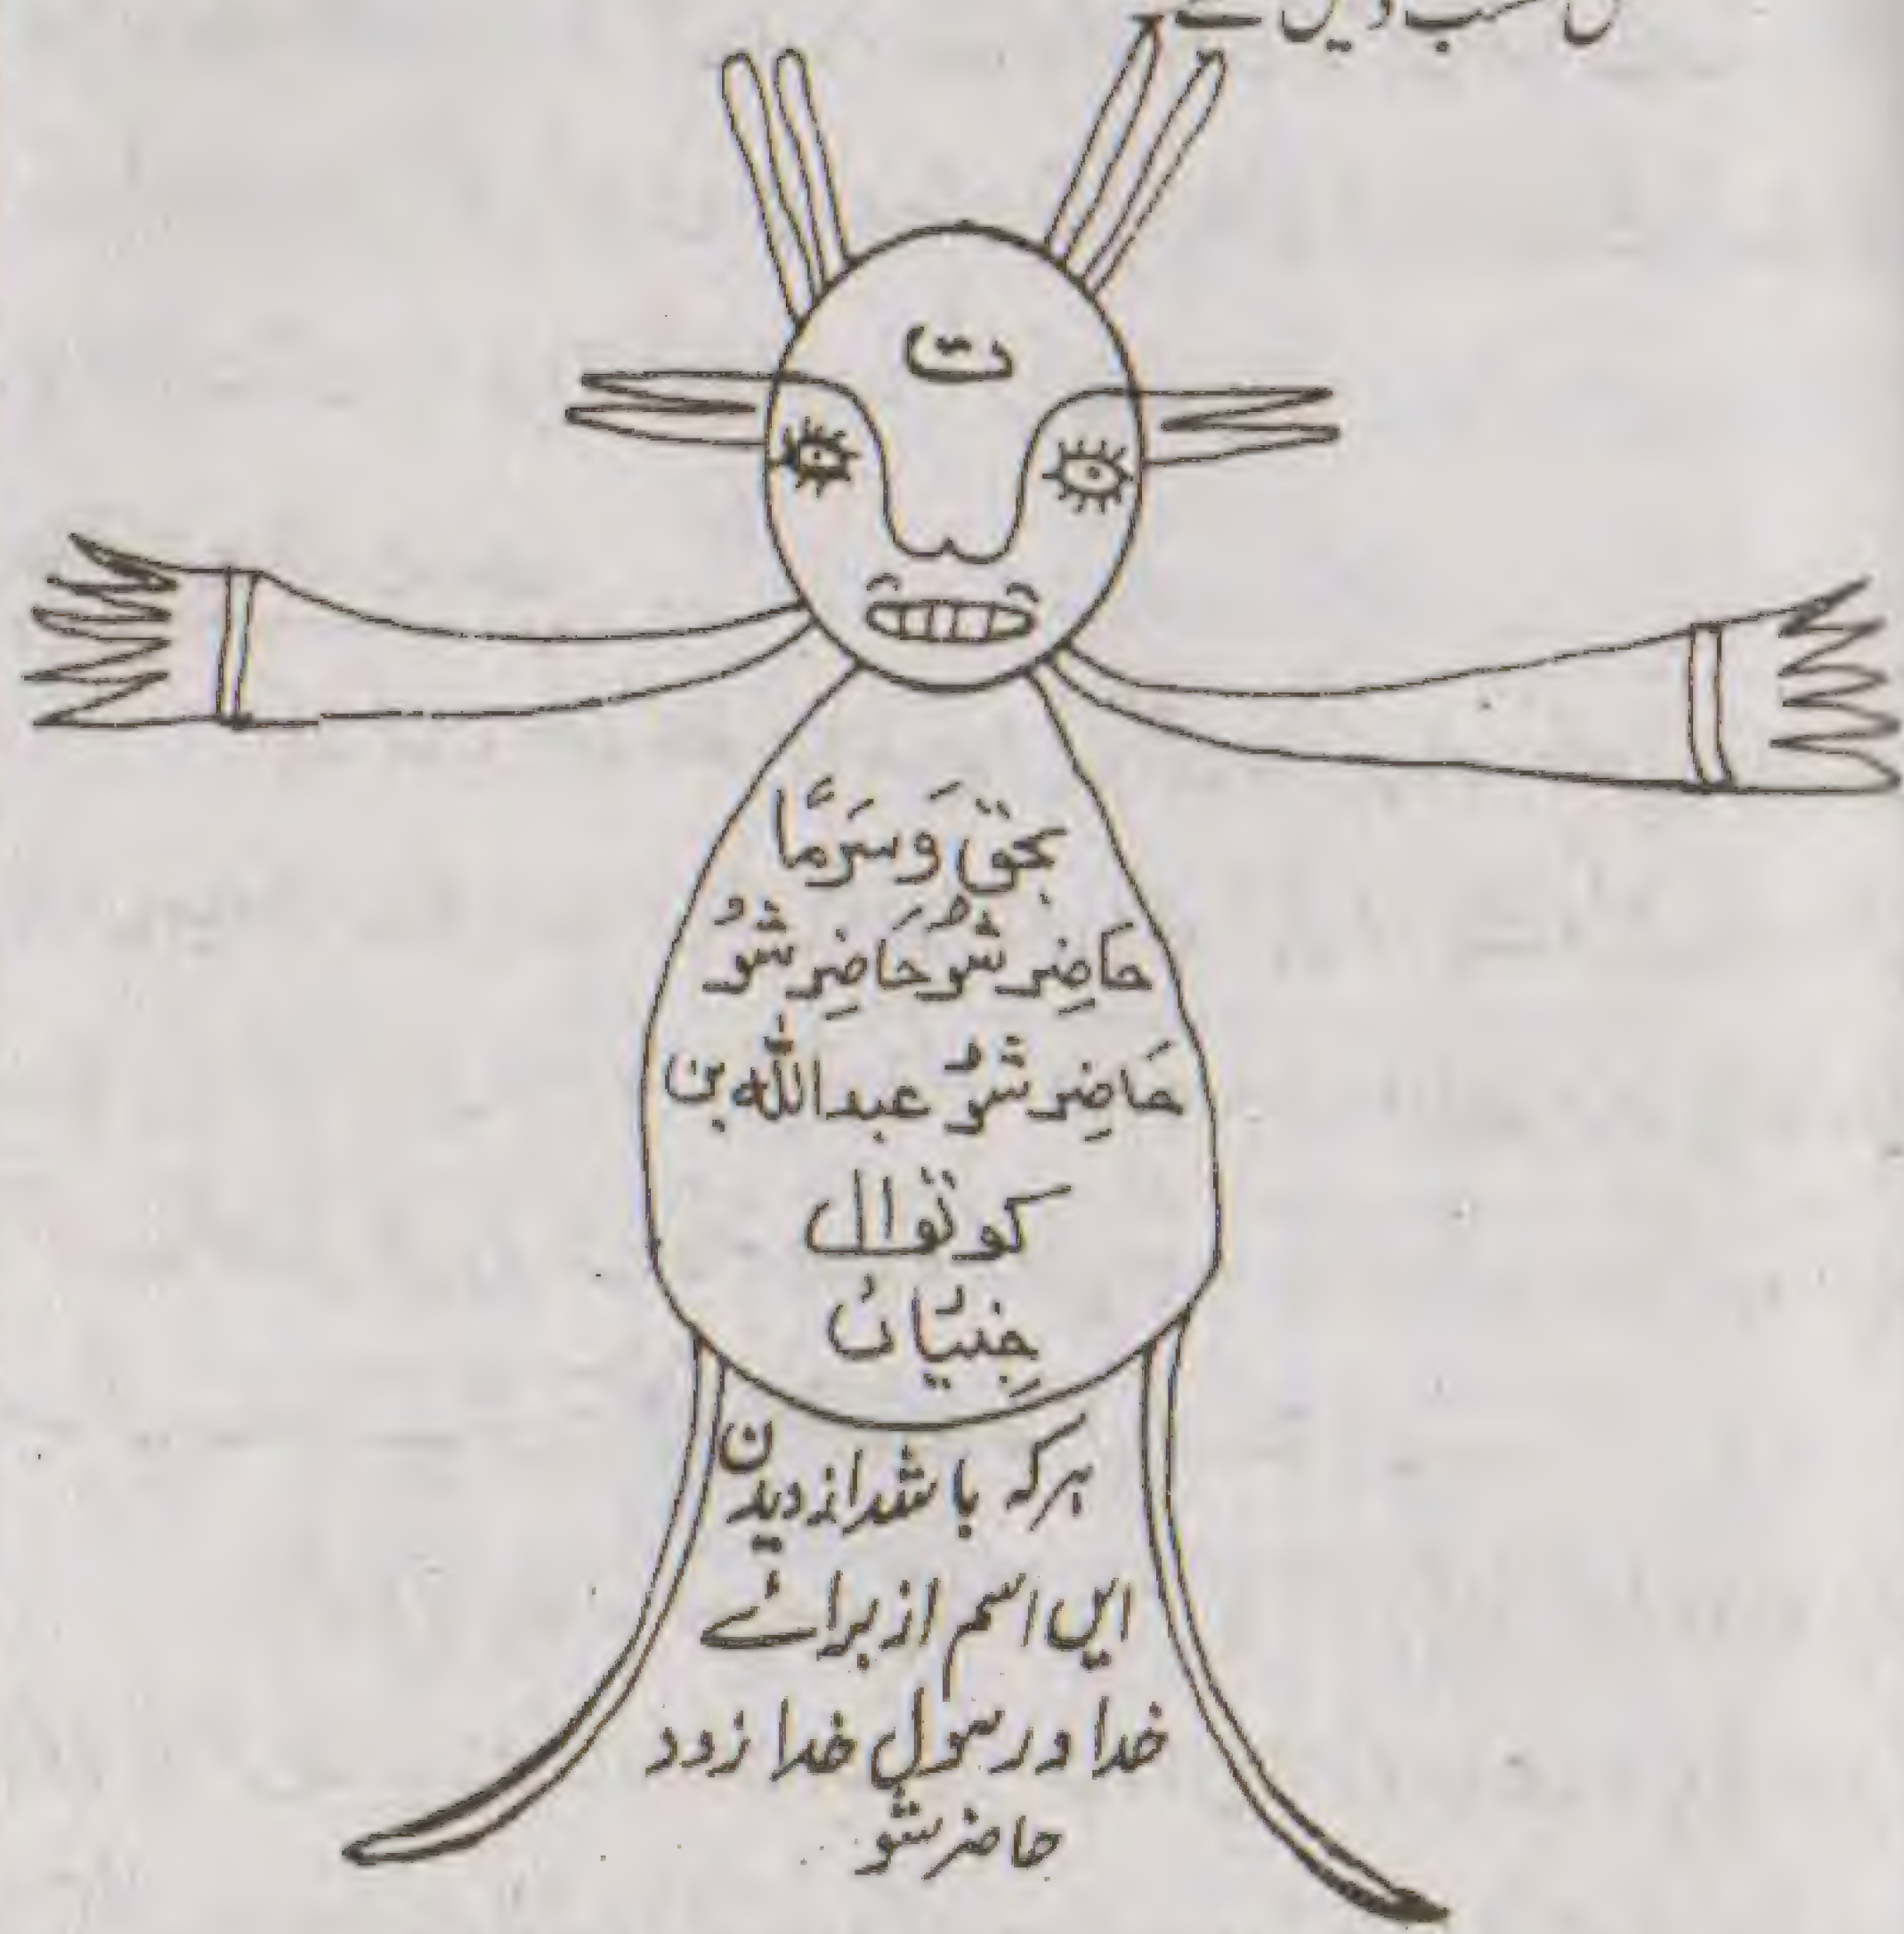 دیں گے
ت
بحق وَسَرمَّا
حَاضِر شوُ حَاضِر شوُ
حَاضِر شوُ عبداللّٰه بن
کوتوال
جِنیّاںُ
ہرکہ باشد از دیدن
ایں اسم از برائے
خدا و رسول خدا زود
حاضر شو